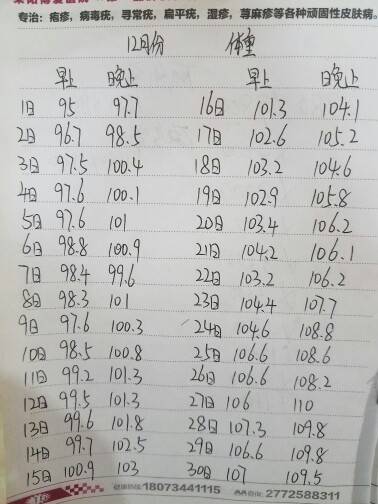 专治：疱疹，病毒疣，寻常疣，扁平疣，湿疹，荨麻疹等各种顽固性皮肤病。
12月份 体重
早上 晚上 早上 晚上
1日 95 97.7 16日 101.3 104.1
2日 96.7 98.5 17日 102.6 105.2
3日 97.5 100.4 18日 103.2 104.6
4日 97.6 100.1 19日 102.9 105.8
5日 97.6 101 20日 103.4 106.2
6日 98.8 100.9 21日 104.2 106.1
7日 98.4 99.6 22日 103.2 106.2
8日 98.3 101 23日 104.4 107.7
9日 97.6 100.3 24日 104.6 108.8
10日 98.5 100.8 25日 106.6 108.6
11日 99.2 101.3 26日 106.6 108.2
12日 99.5 101.3 27日 106 110
13日 99.6 101.8 28日 107.3 109.8
14日 99.7 102.5 29日 106.6 109.8
15日 100.9 103 30日 107 109.5
健康热线:18073441115 QQ咨询:2772588311